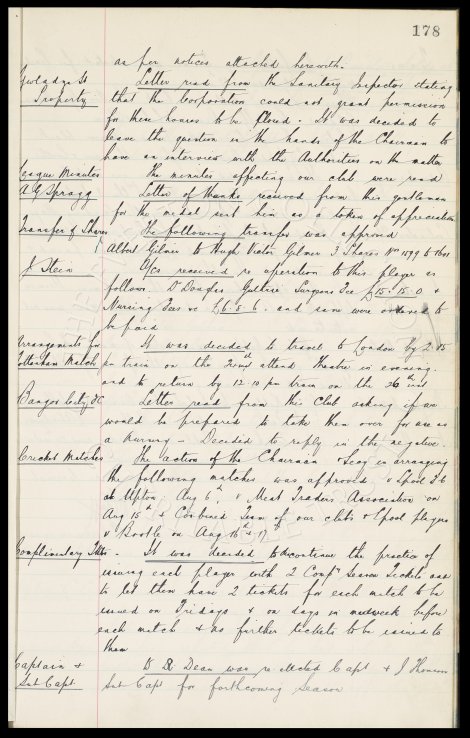 178
as per notices attached herewith.
Gwladys St Letter read from the Sanitary Inspector stating
Property that the Corporation could not grant permission
for these houses to be closed. It was decided to
leave the question in the hands of the Chairman to
have an interview with the Authorities on the matter
League Minutes The minutes affecting our club were read
A G Spragg Letter of thanks received from this gentleman
for the medal sent him as a token of appreciation
Transfer of Shares The following transfer was approved
Albert Gilmer to Hugh Victor Gilmer 3 Shares Nos 1599 to 1601
J Stein A/cs received re operation to this player as
follows. Dr Douglas Guthrie Surgeons Fee £15.15.0 &
Nursing Fees £6.6.6. and same were ordered to
be paid
Arrangements for It was decided to travel to London by 2.15
Tottenham Match pm train on the attend Theatre in evening.
and to return by 12.10 pm train on the 26th inst
Bangor City FC Letter read from the Club asking if we
would be prepared to take them over for use as
a nursery - Decided to reply in the negative.
Cricket Matches The action of the Chairman & Secy in arranging
the following matches was approved, v Lpool
at Upton, Aug 6th, v Meat Traders Association on
Aug 15th & Combined Team of our club & Lpool players
v Bootle on Aug 16th & 17th
Complimentary Tkts. It was decided to discontinue the practice of
issuing each player with 2 Compy Season Tickets and
to let them have 2 tickets for each match to be
issued on Fridays & on days in midweek before
each match & no further tickets to be issued to
them
Captain & W R Dean was re-elected Capt & J Thomson
Sub Capt Sub Capt for forthcoming season